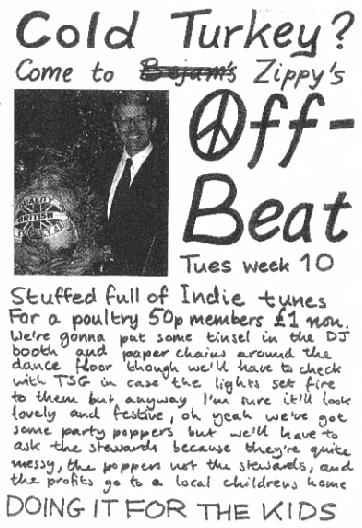 Cold Turkey?
Come to Bejam's Zippy's
Off-
Beat
Tues week 10
BRITISH
Stuffed full of Indie tunes
For a poultry 50p members £1 non.
We're gonna put some tinsel in the DJ
booth and paper chains around the
dance floor though we'll have to check
with TSG in case the lights set fire
to them but anyway I'm sure it'll look
lovely and festive, oh yeah we've got
some party poppers but we'll have to
ask the stewards because they're quite
messy, the poppers not the stewards, and
the profits go to a local childrens home
DOING IT FOR THE KIDS